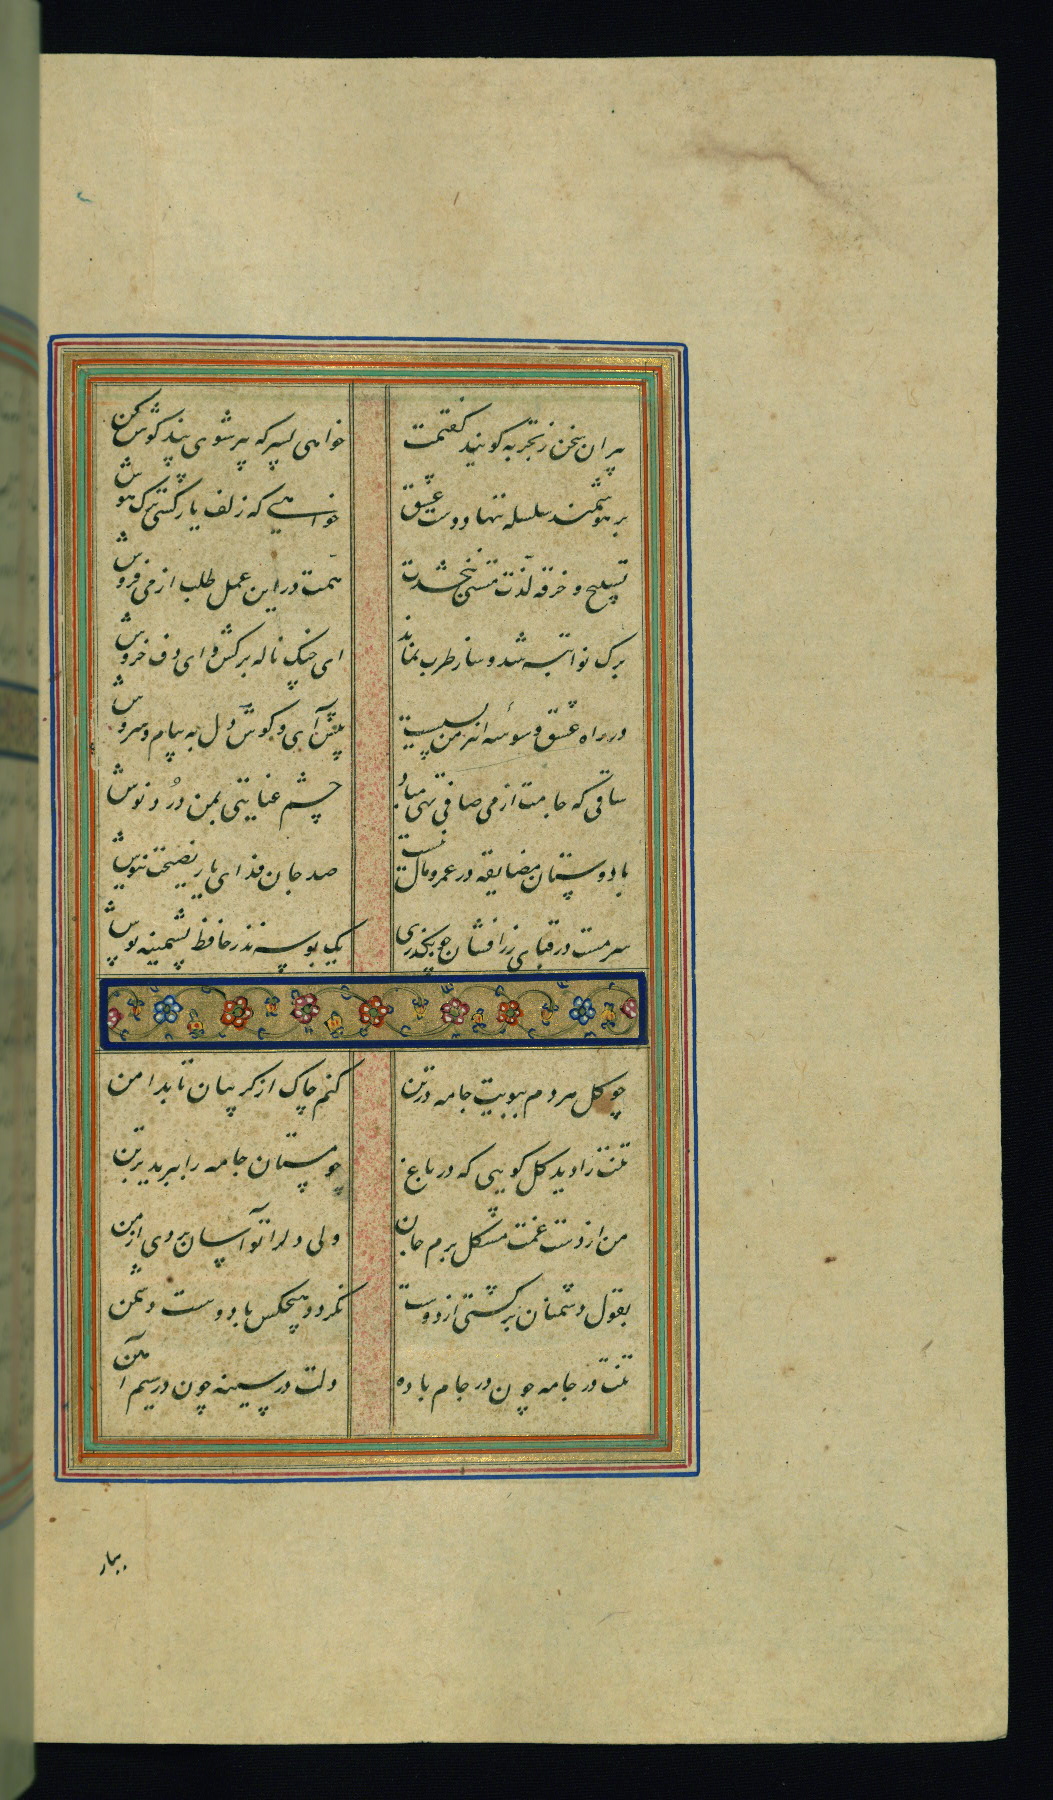 پیران سخن ز تجربه کویند کفتمت خواهی پسر که پیر شوی پند کوش کن
بر هوشمند سلسله ننهاد دست عشق خواهی که زلف یار کشی ترک هوش
تسبیح و خرقه لذت مستی نبخشدت همت در این عمل طلب از می فروش
برک نوا تبه شد و ساز طرب نماند ای چنک ناله برکش و ای دف خروش
در راه عشق وسوسه اهرمن بسیست پیش آی و کوش دل به پیام سروش
ساقی که جامت از می صافی تهی مباد چشم عنایتی بمن درد نوش
با دوستان مضایقه در عمر و مال نیست صد جان فدای یار نصیحت نیوش
سرمست در قبای زرافشان چو بکذری یک بوسه نذر حافظ پشمینه پوش
چو کل هر دم ببویت جامه در تن کنم چاک از کریبان تا بدامن
تنت را دید کل کویی که در باغ چو مستان جامه را بدرید بر تن
من از دست غمت مشکل برم جان ولی دل را تو آسان بردی از من
بقول دشمنان برکشتی از دوست نکردد هیچکس با دوست دشمن
تنت در جامه چون در جام باده دلت در سینه چون در سیم آهن
ببار